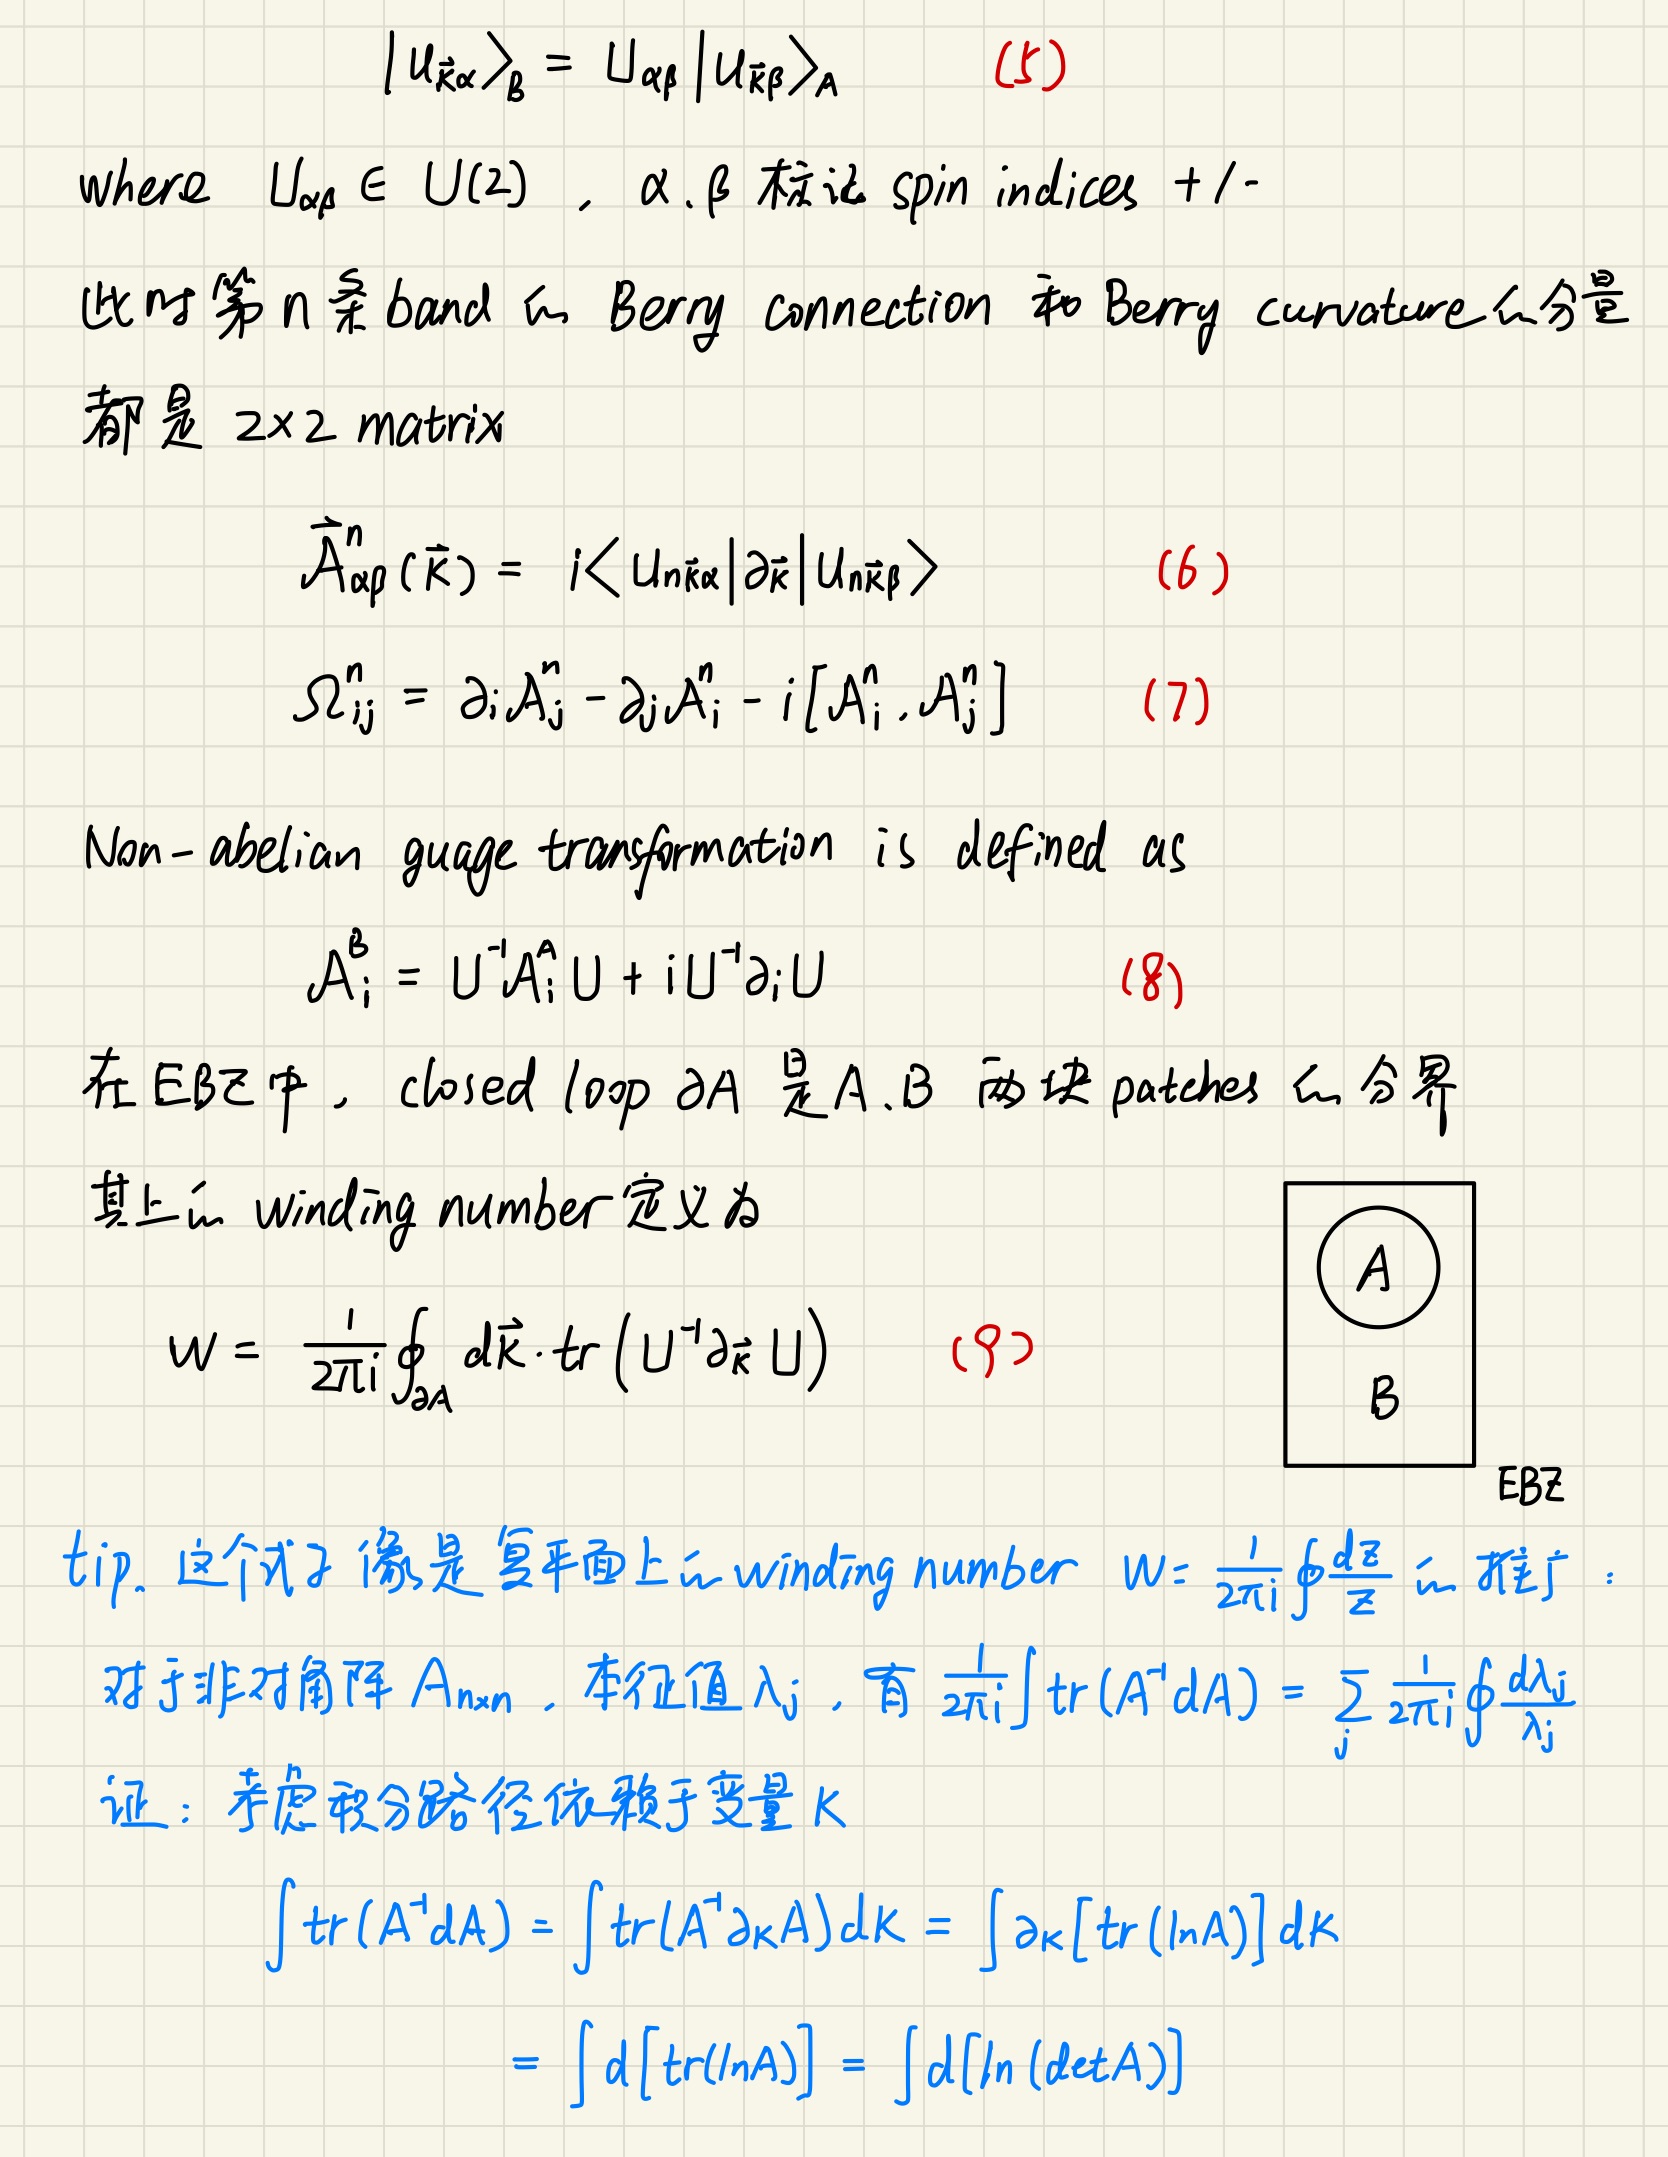 |u_{\vec{k}α}⟩_B = U_{αβ} |u_{\vec{k}β}⟩_A (5)
where U_{αβ} ∈ U(2) , α.β 标记 spin indices +/-
此时第 n 条 band 的 Berry connection 和 Berry curvature 的分量
都是 2×2 matrix
\vec{A}^n_{αβ}(\vec{k}) = i⟨u_{n\vec{k}α}|∂_{\vec{k}}|u_{n\vec{k}β}⟩ (6)
Ω^n_{ij} = ∂_i A^n_j - ∂_j A^n_i - i[A^n_i , A^n_j] (7)
Non-abelian guage transformation is defined as
A^B_i = U^{-1} A^A_i U + i U^{-1} ∂_i U (8)
在 EBZ 中, closed loop ∂A 是 A.B 两块 patches 的分界
其上的 winding number 定义为
A
W = \frac{1}{2πi} ∮_{∂A} d\vec{k} · tr(U^{-1} ∂_{\vec{k}} U) (9)
B
EBZ
tip. 这个式子像是复平面上的 winding number W = \frac{1}{2πi} ∮ \frac{dz}{z} 的推广 :
对于非对角阵 A_{n×n} , 本征值 λ_j , 有 \frac{1}{2πi} ∫ tr(A^{-1}dA) = ∑_j \frac{1}{2πi} ∮ \frac{dλ_j}{λ_j}
证: 考虑积分路径依赖于变量 K
∫ tr(A^{-1}dA) = ∫ tr(A^{-1} ∂_K A) dK = ∫ ∂_K [tr(lnA)] dK
= ∫ d[tr(lnA)] = ∫ d[ln(detA)]